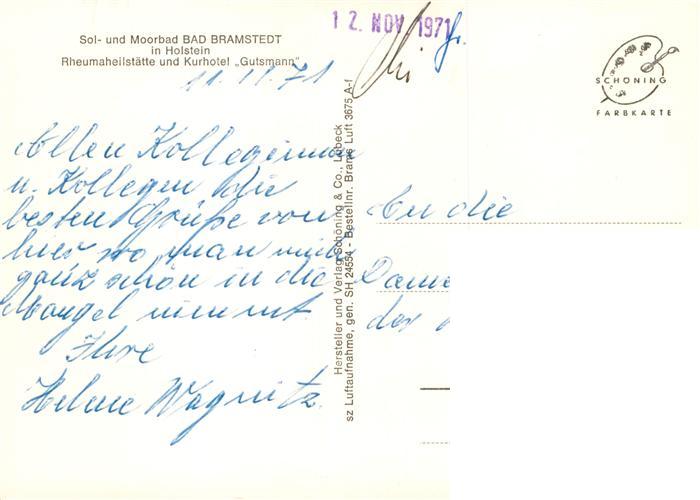 Sol- und Moorbad BAD BRAMSTEDT
in Holstein
Rheumaheilstätte und Kurhotel „Gutsmann"
11.11.71
Allen Kolleginnen
u. Kollegen die
besten Grüße von
hier wo man mich
ganz schön in die
Mangel nimmt.
Ihre
Helene Wagnitz.
12. NOV 1971
Hersteller und Verlag Schöning & Co., Lübeck
sz Luftaufnahme, gen. SH 24554 - Bestellnr. Brams Luft 3675 A-f
SCHÖNING
FARBKARTE
An die
Dame
der